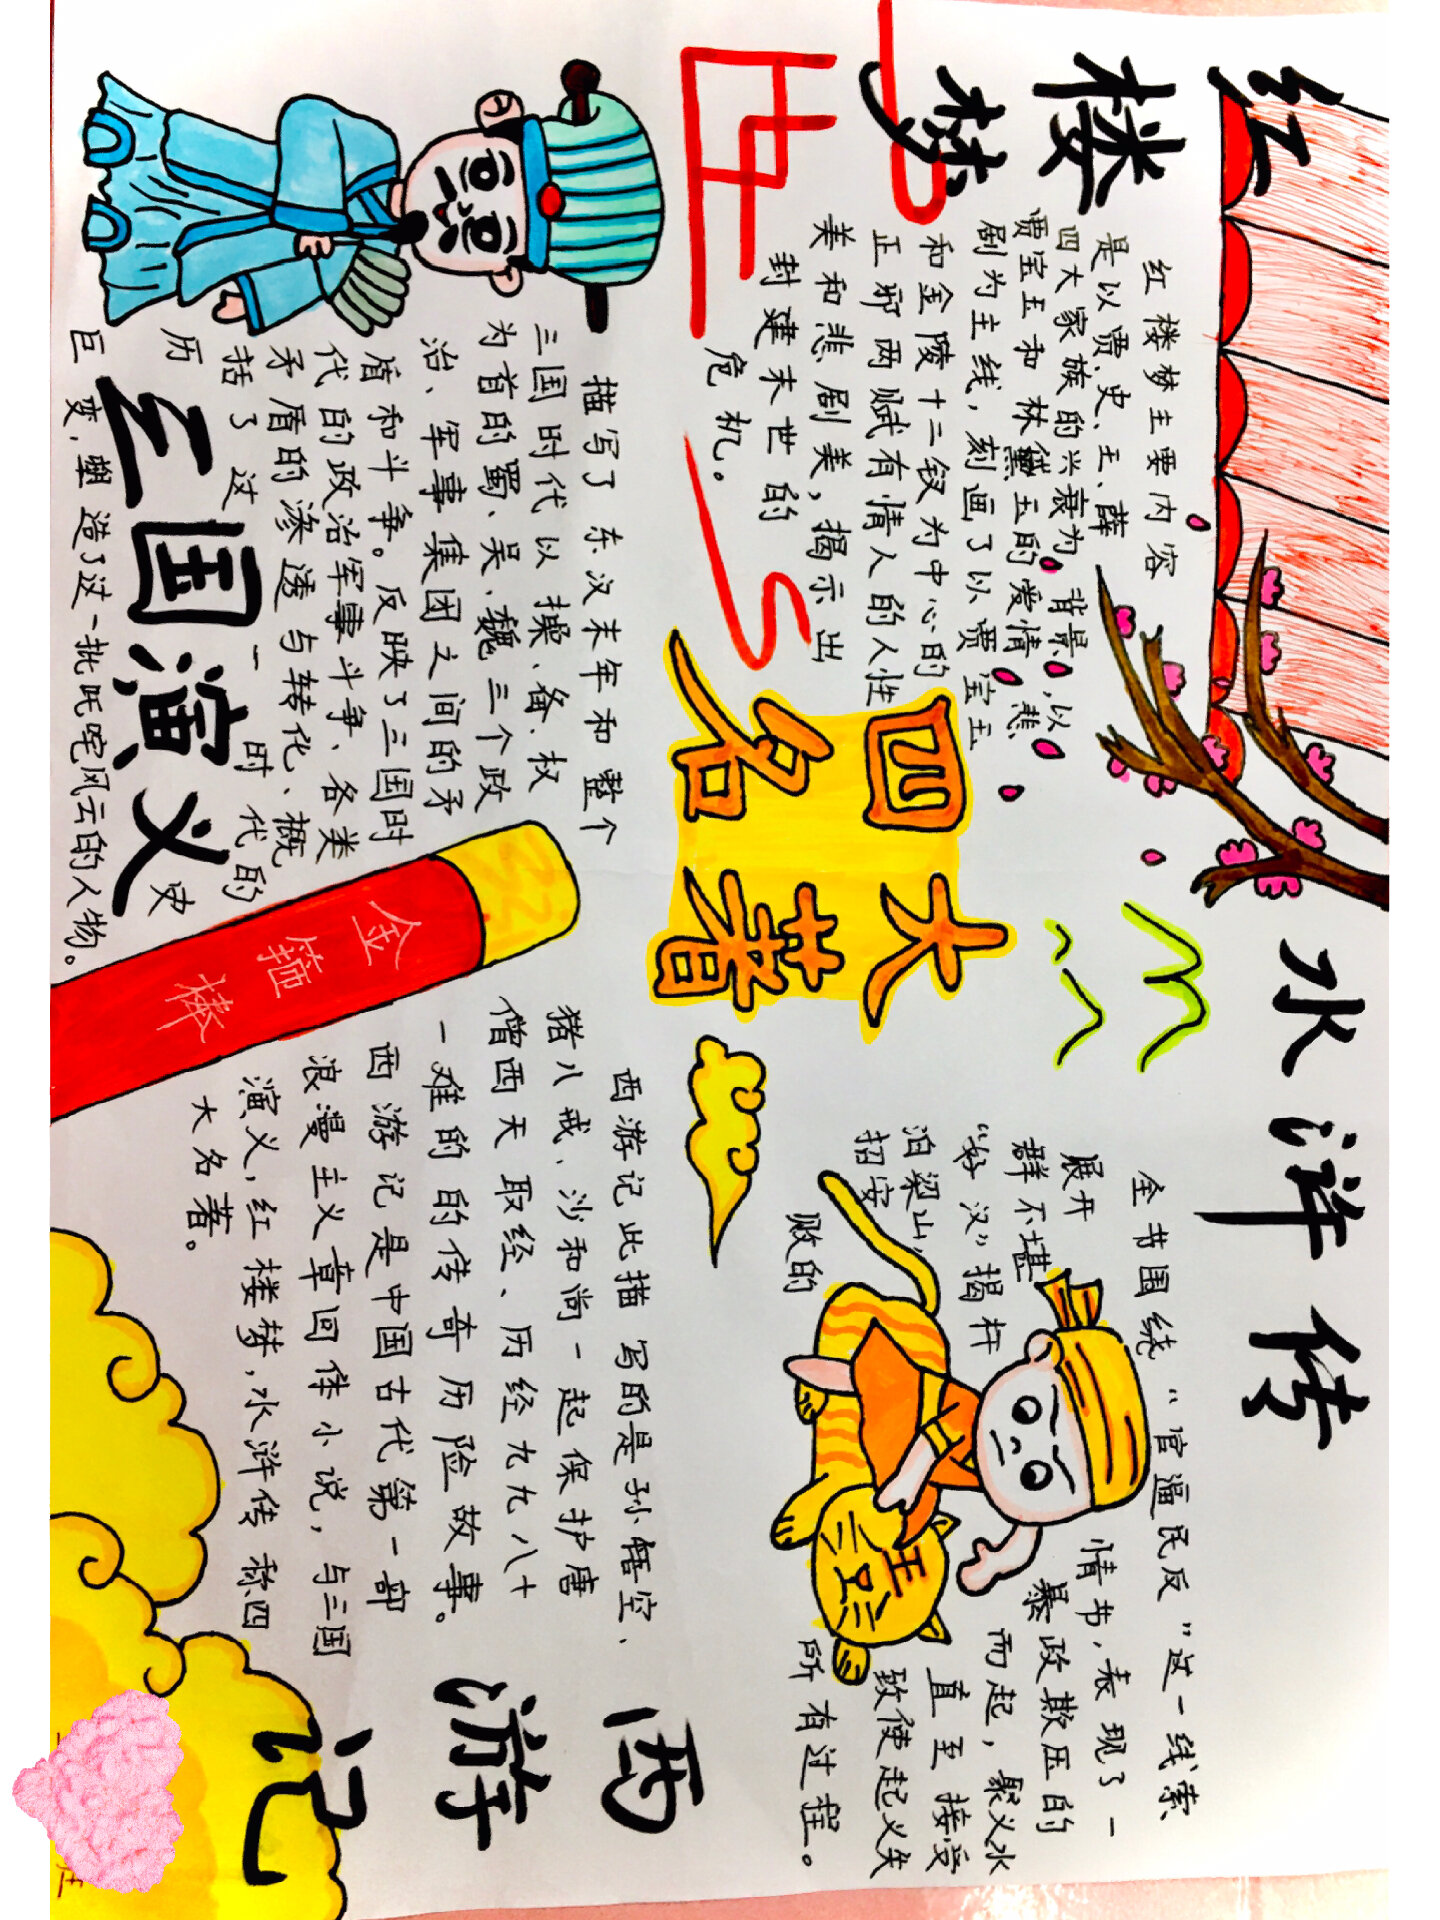 红楼梦
红楼梦主要内容
是以贾、史、王、薛
四大家族的兴衰为背景,以
贾宝玉和林黛玉的爱情悲
剧为主线,刻画了以贾宝玉
和金陵十二钗为中心的
正邪两赋有情人的人性
美和悲剧美,揭示出
封建末世的
危机。
水浒传
全书围绕“官逼民反”这一线索
展开情节,表现了一
群不堪暴政欺压的
“好汉”揭杆而起,聚义水
泊梁山,直至接受
招安致使起义失
败的所有过程。
四大
名著
描写了东汉末年和整个
三国时代以操、备、权
为首的蜀、吴、魏三个政
治、军事集团之间的矛
盾和斗争。反映了三国时
代的政治军事斗争、各类
矛盾的渗透与转化、概
括了这一时代的
历史
巨变,塑造了这一批叱咤风云的人物。
三国演义
金箍棒
西游记此描写的是孙悟空、
猪八戒、沙和尚一起保护唐
僧西天取经、历经九九八十
一难的的传奇历险故事。
西游记是中国古代第一部
浪漫主义章回体小说,与三国
演义,红楼梦,水浒传称四
大名著。
西游记